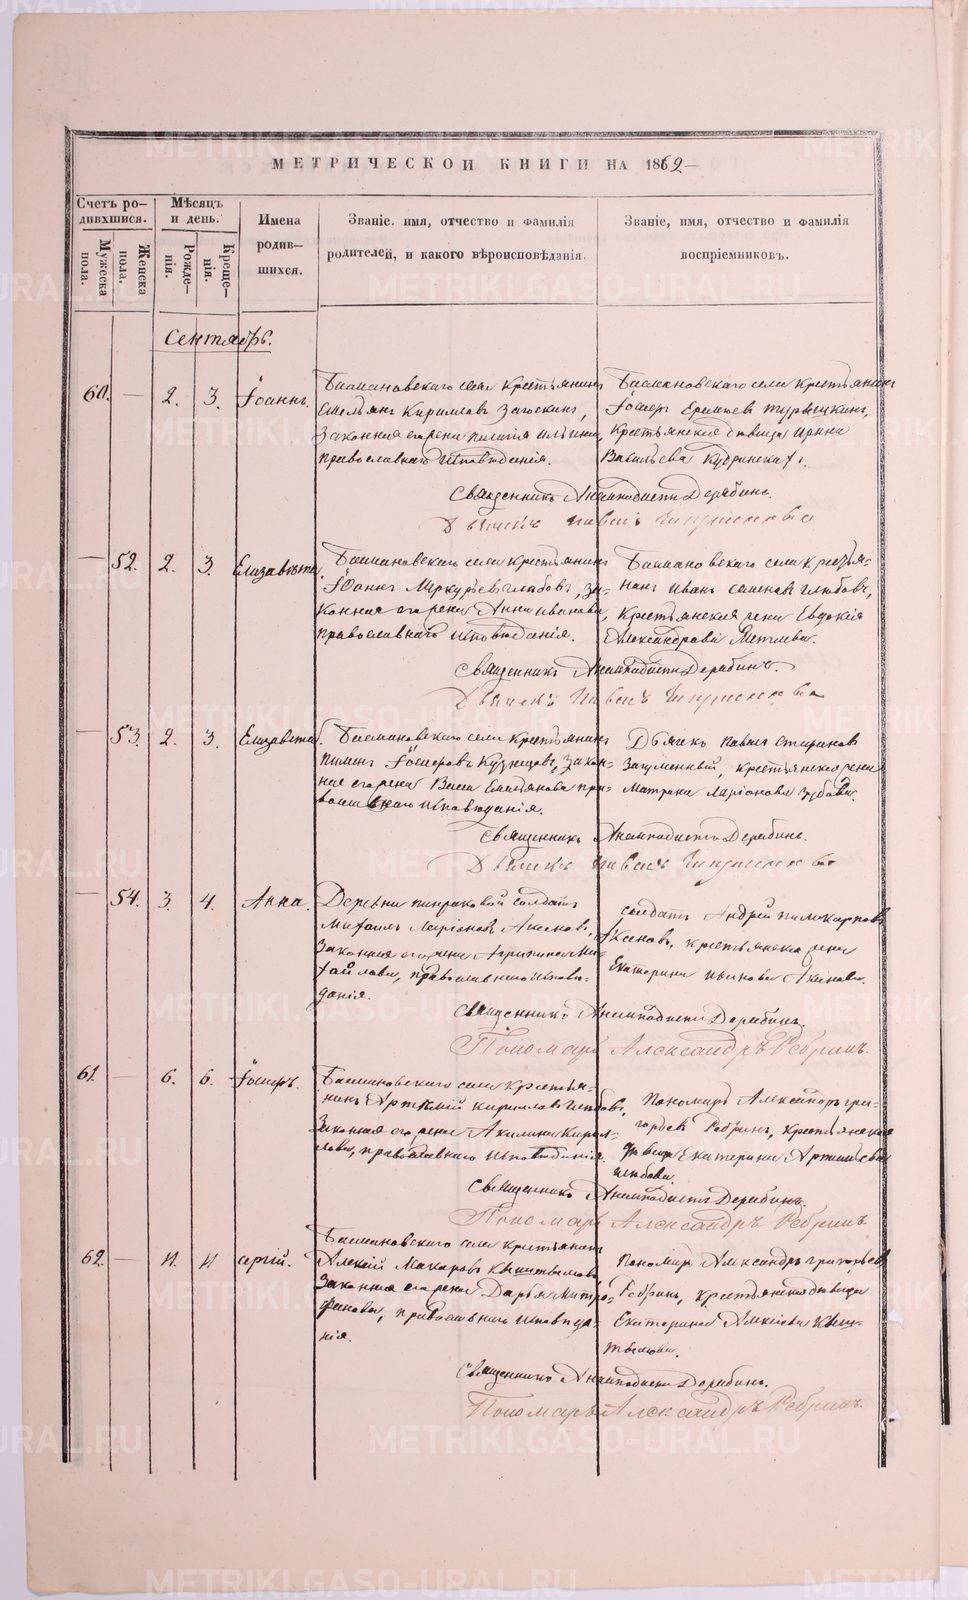 МЕТРИЧЕСКОЙ КНИГИ НА 1862
Счетъ родившихся.
Мужеска пола.
Женска пола.
Мѣсяцъ и день.
Рожденія.
Крещенія.
Имена родившихся.
Званіе, имя, отчество и фамилія родителей, и какого вѣроисповѣданія.
Званіе, имя, отчество и фамилія воспріемниковъ.
Сентябрь.
60. — 2. 3. Іоаннъ.
Басмановскаго села крестьянинъ
Емельянъ Кириловъ Загоскинъ,
законная его жена Пелагія Ильина,
православнаго исповѣданія.
Басмановскаго села крестьянинъ
Крестьянская дѣвица Ирина
Васильева
Священникъ Анемподистъ Дерябинъ.
Дьячекъ Павелъ
— 52. 2. 3. Елизавета.
Басмановскаго села крестьянинъ
Іоаннъ Меркурьевъ Глѣбовъ, за-
конная его жена Анна Иванова,
православнаго исповѣданія.
Басмановскаго села крестья-
нинъ Иванъ Семеновъ Глѣбовъ,
Крестьянская жена Евдокія
Александрова Метлева.
Священникъ Анемподистъ Дерябинъ.
Дьячекъ Павелъ
— 53. 2. 3. Елизавета.
Басмановскаго села крестьянинъ
Пименъ Кузнецовъ, закон-
ная его жена Васса Емельянова пра-
вославнаго исповѣданія.
Дьячекъ Павелъ
крестьянская жена
Матрона Ларіонова Зубова.
Священникъ Анемподистъ Дерябинъ.
Дьячекъ Павелъ
— 54. 3. 4. Анна.
Деревни солдатъ
Михаилъ Ларіоновъ Аксеновъ,
законная его жена Агрипина Ми-
хайлова, православнаго исповѣ-
данія.
солдатъ Андрей Поликарповъ
Аксеновъ, крестьянская жена
Екатерина Иванова Аксенова.
Священникъ Анемподистъ Дерябинъ.
Пономарь Александръ Ребринъ.
61. — 6. 6. Іосифъ.
Басмановскаго села крестья-
нинъ Артемій Кириловъ Глѣбовъ,
законная его жена Акилина Кирил-
лова, православнаго исповѣданія.
Пономарь Александръ Гри-
горьевъ Ребринъ, крестьянская
дѣвица Екатерина Артемьева
Глѣбова.
Священникъ Анемподистъ Дерябинъ.
Пономарь Александръ Ребринъ.
62. — 11. 11 Сергій.
Басмановскаго села крестьянинъ
Алексѣй Макаровъ Кыштымовъ,
законная его жена Дарья Митро-
фанова, православнаго исповѣда-
нія.
Пономарь Александръ Григорьевъ
Ребринъ, крестьянская дѣвица
Екатерина Алексѣева Кыш-
тымова.
Священникъ Анемподистъ Дерябинъ.
Пономарь Александръ Ребринъ.
METRIKI.GASO-URAL.RU